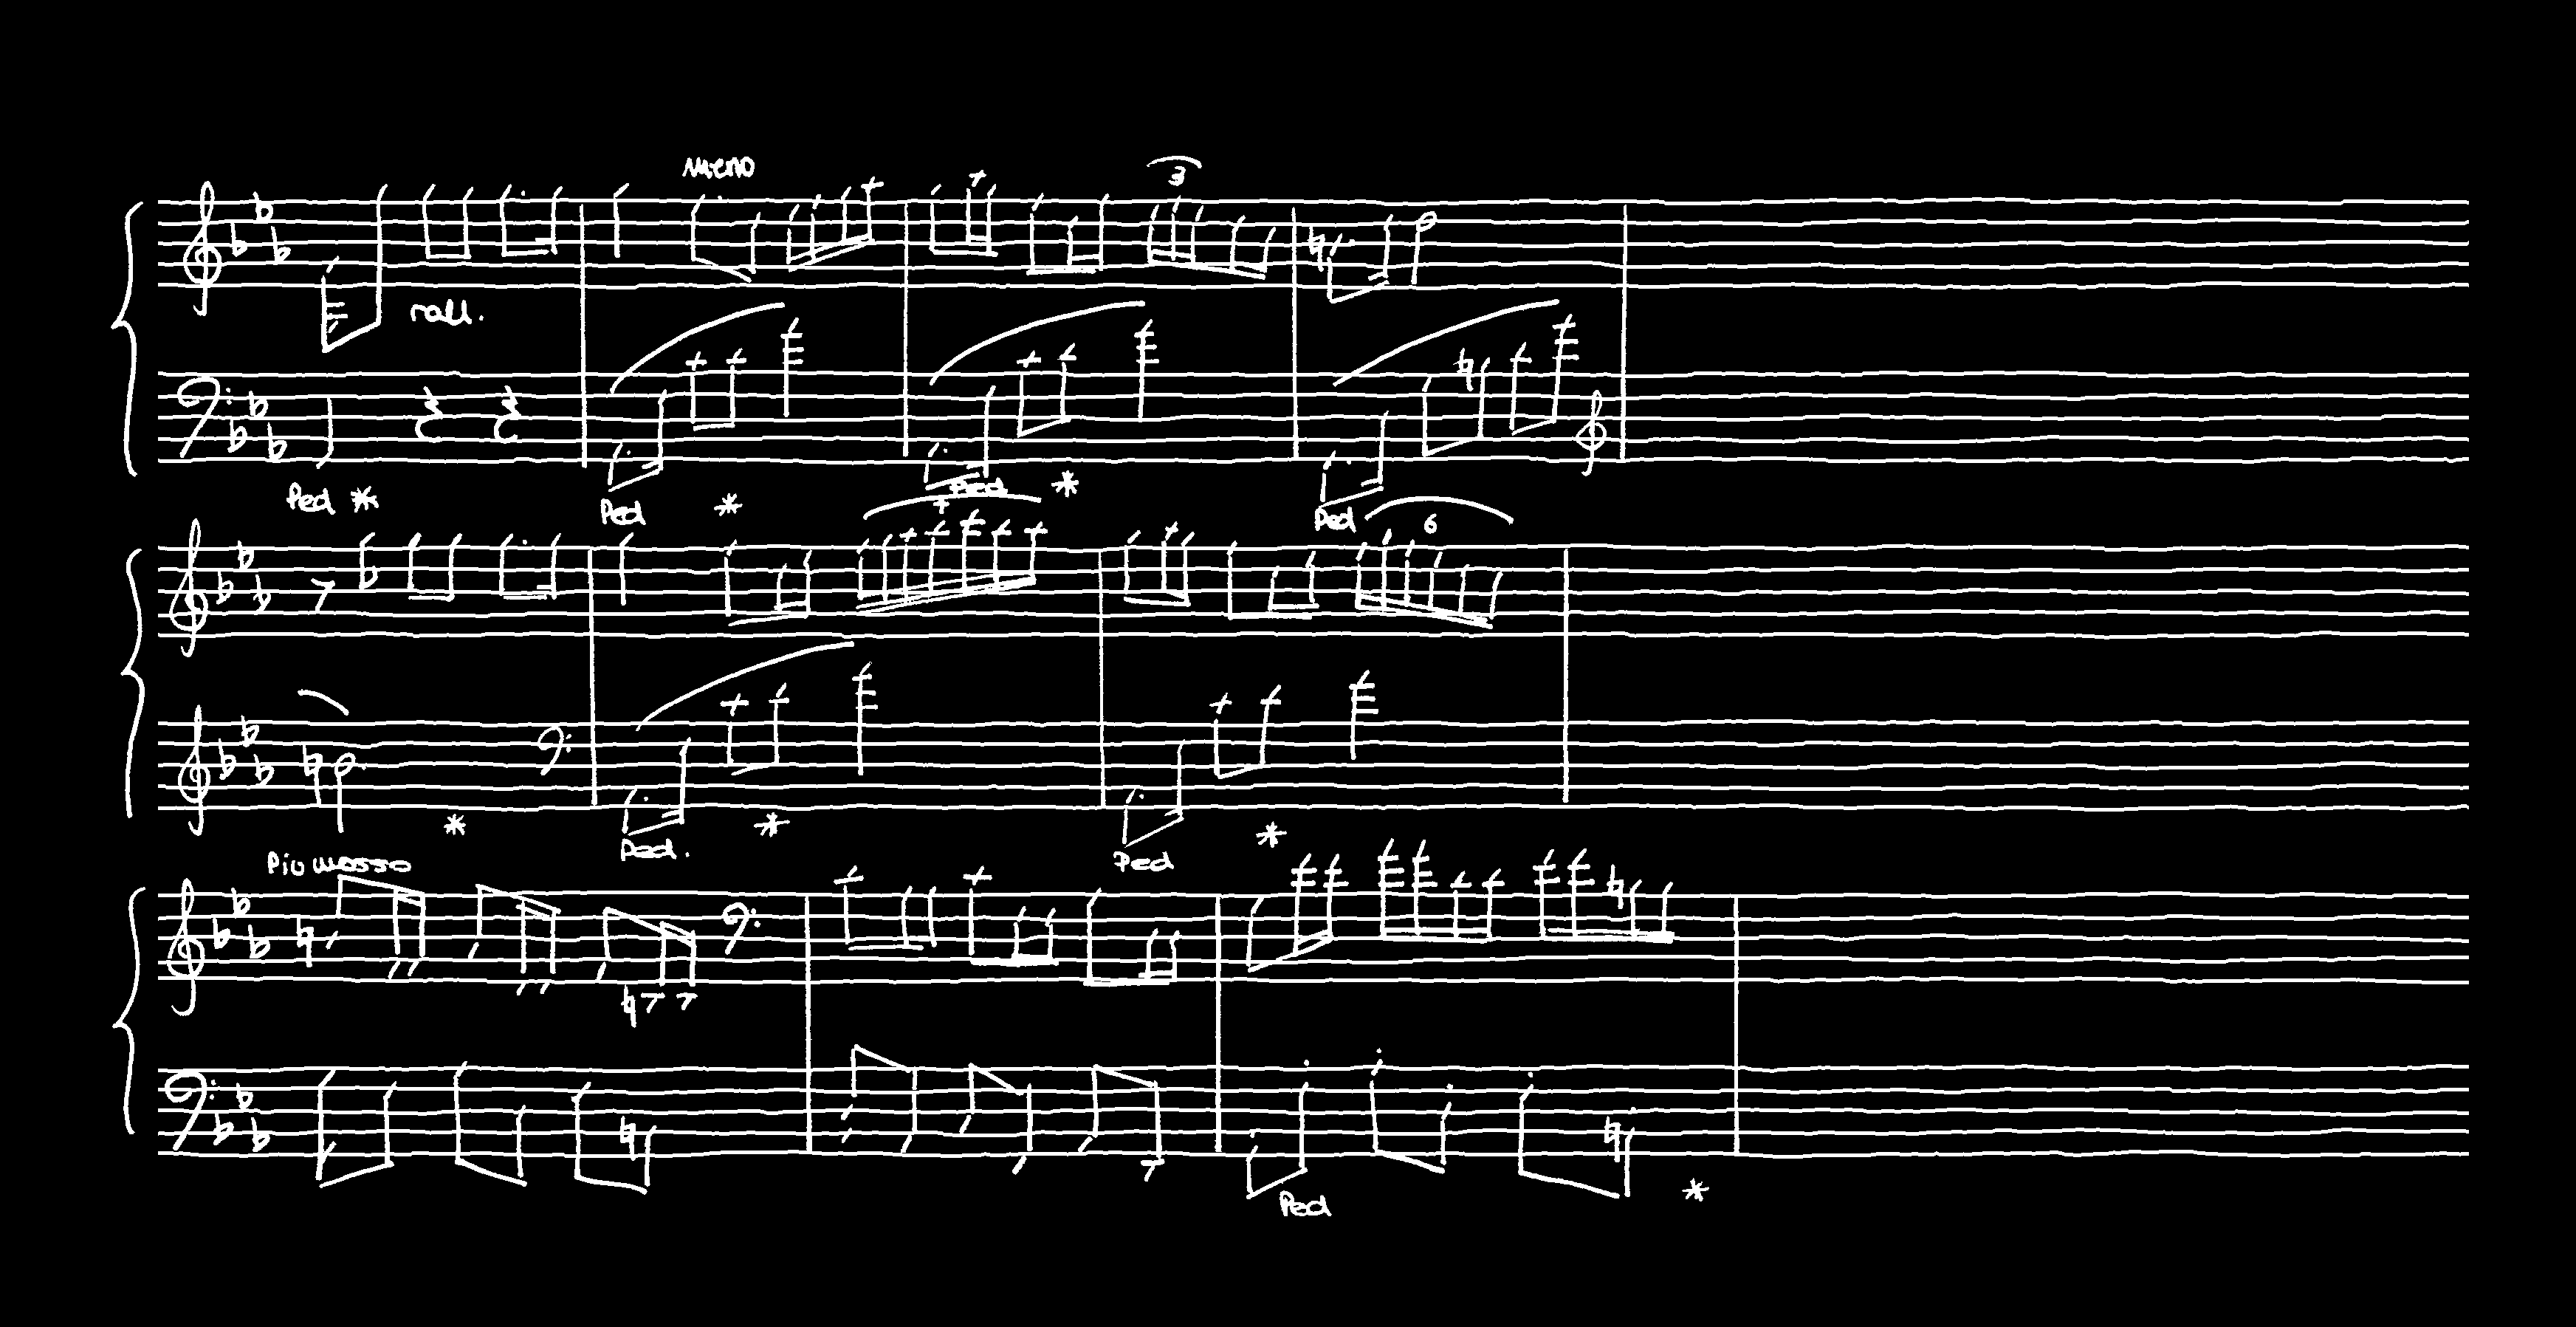 Meno
3
rall.
Ped * Ped * Ped * Ped
7 6
* Ped. * Ped *
Più mosso
Ped *